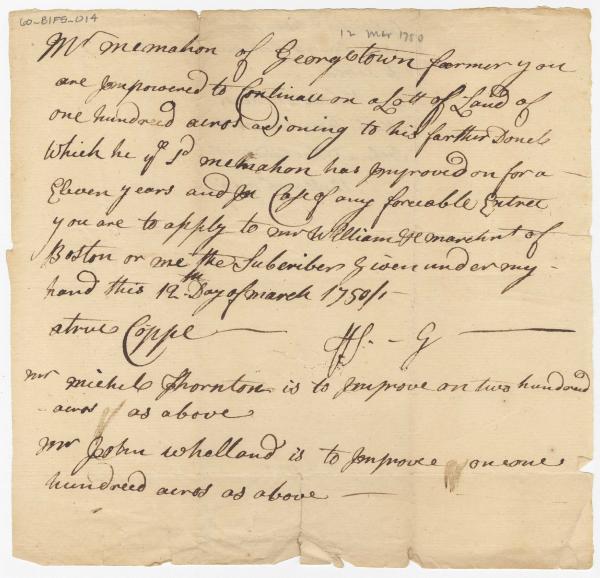 60-B1F5-D14
12 Mar 1750
Mr memahon of Georgetown farmer you
are Jmpowered to Continaue on a Lott of Land of
one hundred acros adjoning to his farther Donels
Which he ye sd memahon has Jmproved on for a —
Eleven years and Jn Case of any forceable Entree
you are to apply to mr William marchnt of
Boston or me the Subcriber Given under my -
hand this 12th Day of march 1750/1 -
a true Coppe — — G —
mr michel Thornton is to Jmprove on two hundred
- acros as above
mr John Whalland is to Jmprove on one
hundreed acros as above —